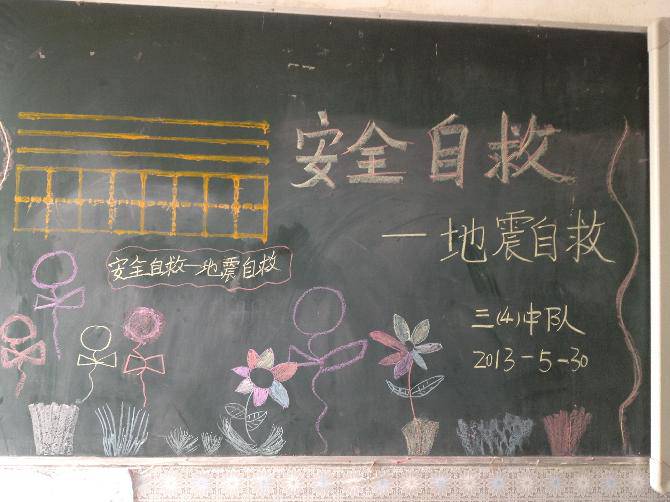 安全自救
—地震自救
安全自救—地震自救
三(4)中队
2013-5-30